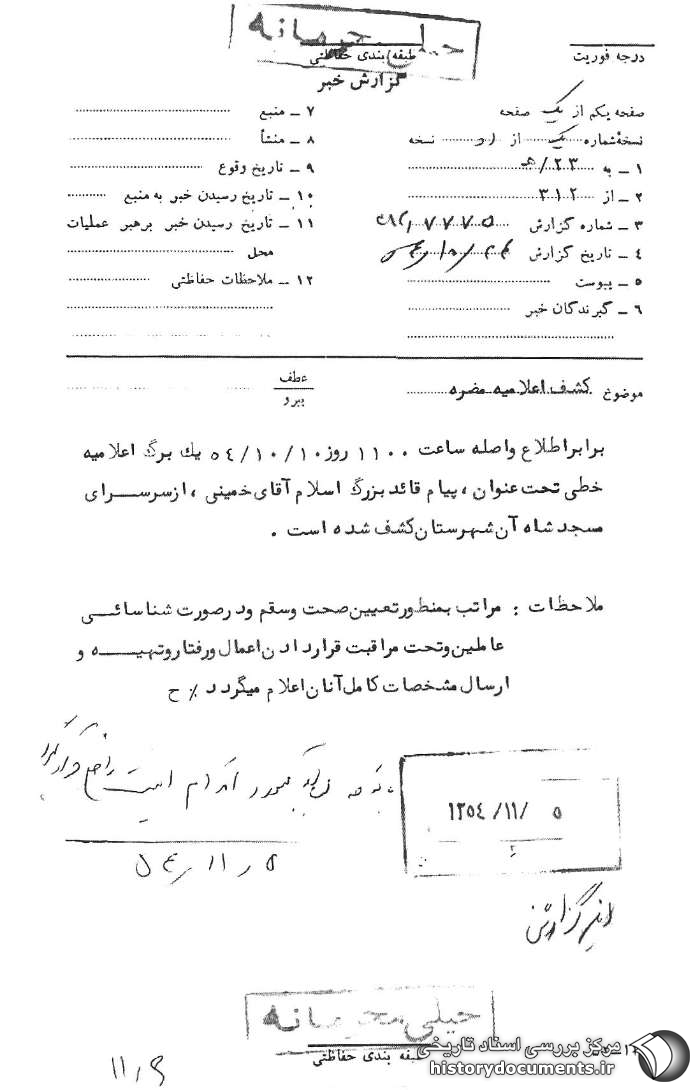 خیلی محرمانه
درجه فوریت
طبقه بندی حفاظتی
گزارش خبر
صفحه یکم از یک صفحه
نسخه شماره یک از نسخه
۱ ـ به ۲۳/هـ
۲ ـ از ۳۱۲
۳ ـ شماره گزارش
۴ ـ تاریخ گزارش
۵ ـ پیوست
۶ ـ گیرندگان خبر
۷ ـ منبع
۸ ـ منشأ
۹ ـ تاریخ وقوع
۱۰ ـ تاریخ رسیدن خبر به منبع
۱۱ ـ تاریخ رسیدن خبر برهبر عملیات
محل
۱۲ ـ ملاحظات حفاظتی
موضوع کشف اعلامیه مضره
عطف
پیرو
برابر اطلاع واصله ساعت ۱۱۰۰ روز ۵٤/۱۰/۱۰ یك برگ اعلامیه
خطی تحت عنوان ، پیام قائد بزرگ اسلام آقای خمینی ، از سرسرای
مسجد شاه آن شهرستان کشف شده است .
ملاحظات : مراتب بمنظور تعیین صحت وسقم ودر صورت شناسائی
عاملین وتحت مراقبت قرار دادن اعمال ورفتار وتهیه و
ارسال مشخصات کامل آنان اعلام میگردد ٪ ح
۵ /۱۱/ ۱۳۵٤
۵ ر ۱۱ ر ۵٤
خیلی محرمانه
طبقه بندی حفاظتی
مرکز بررسی اسناد تاریخی
historydocuments.ir